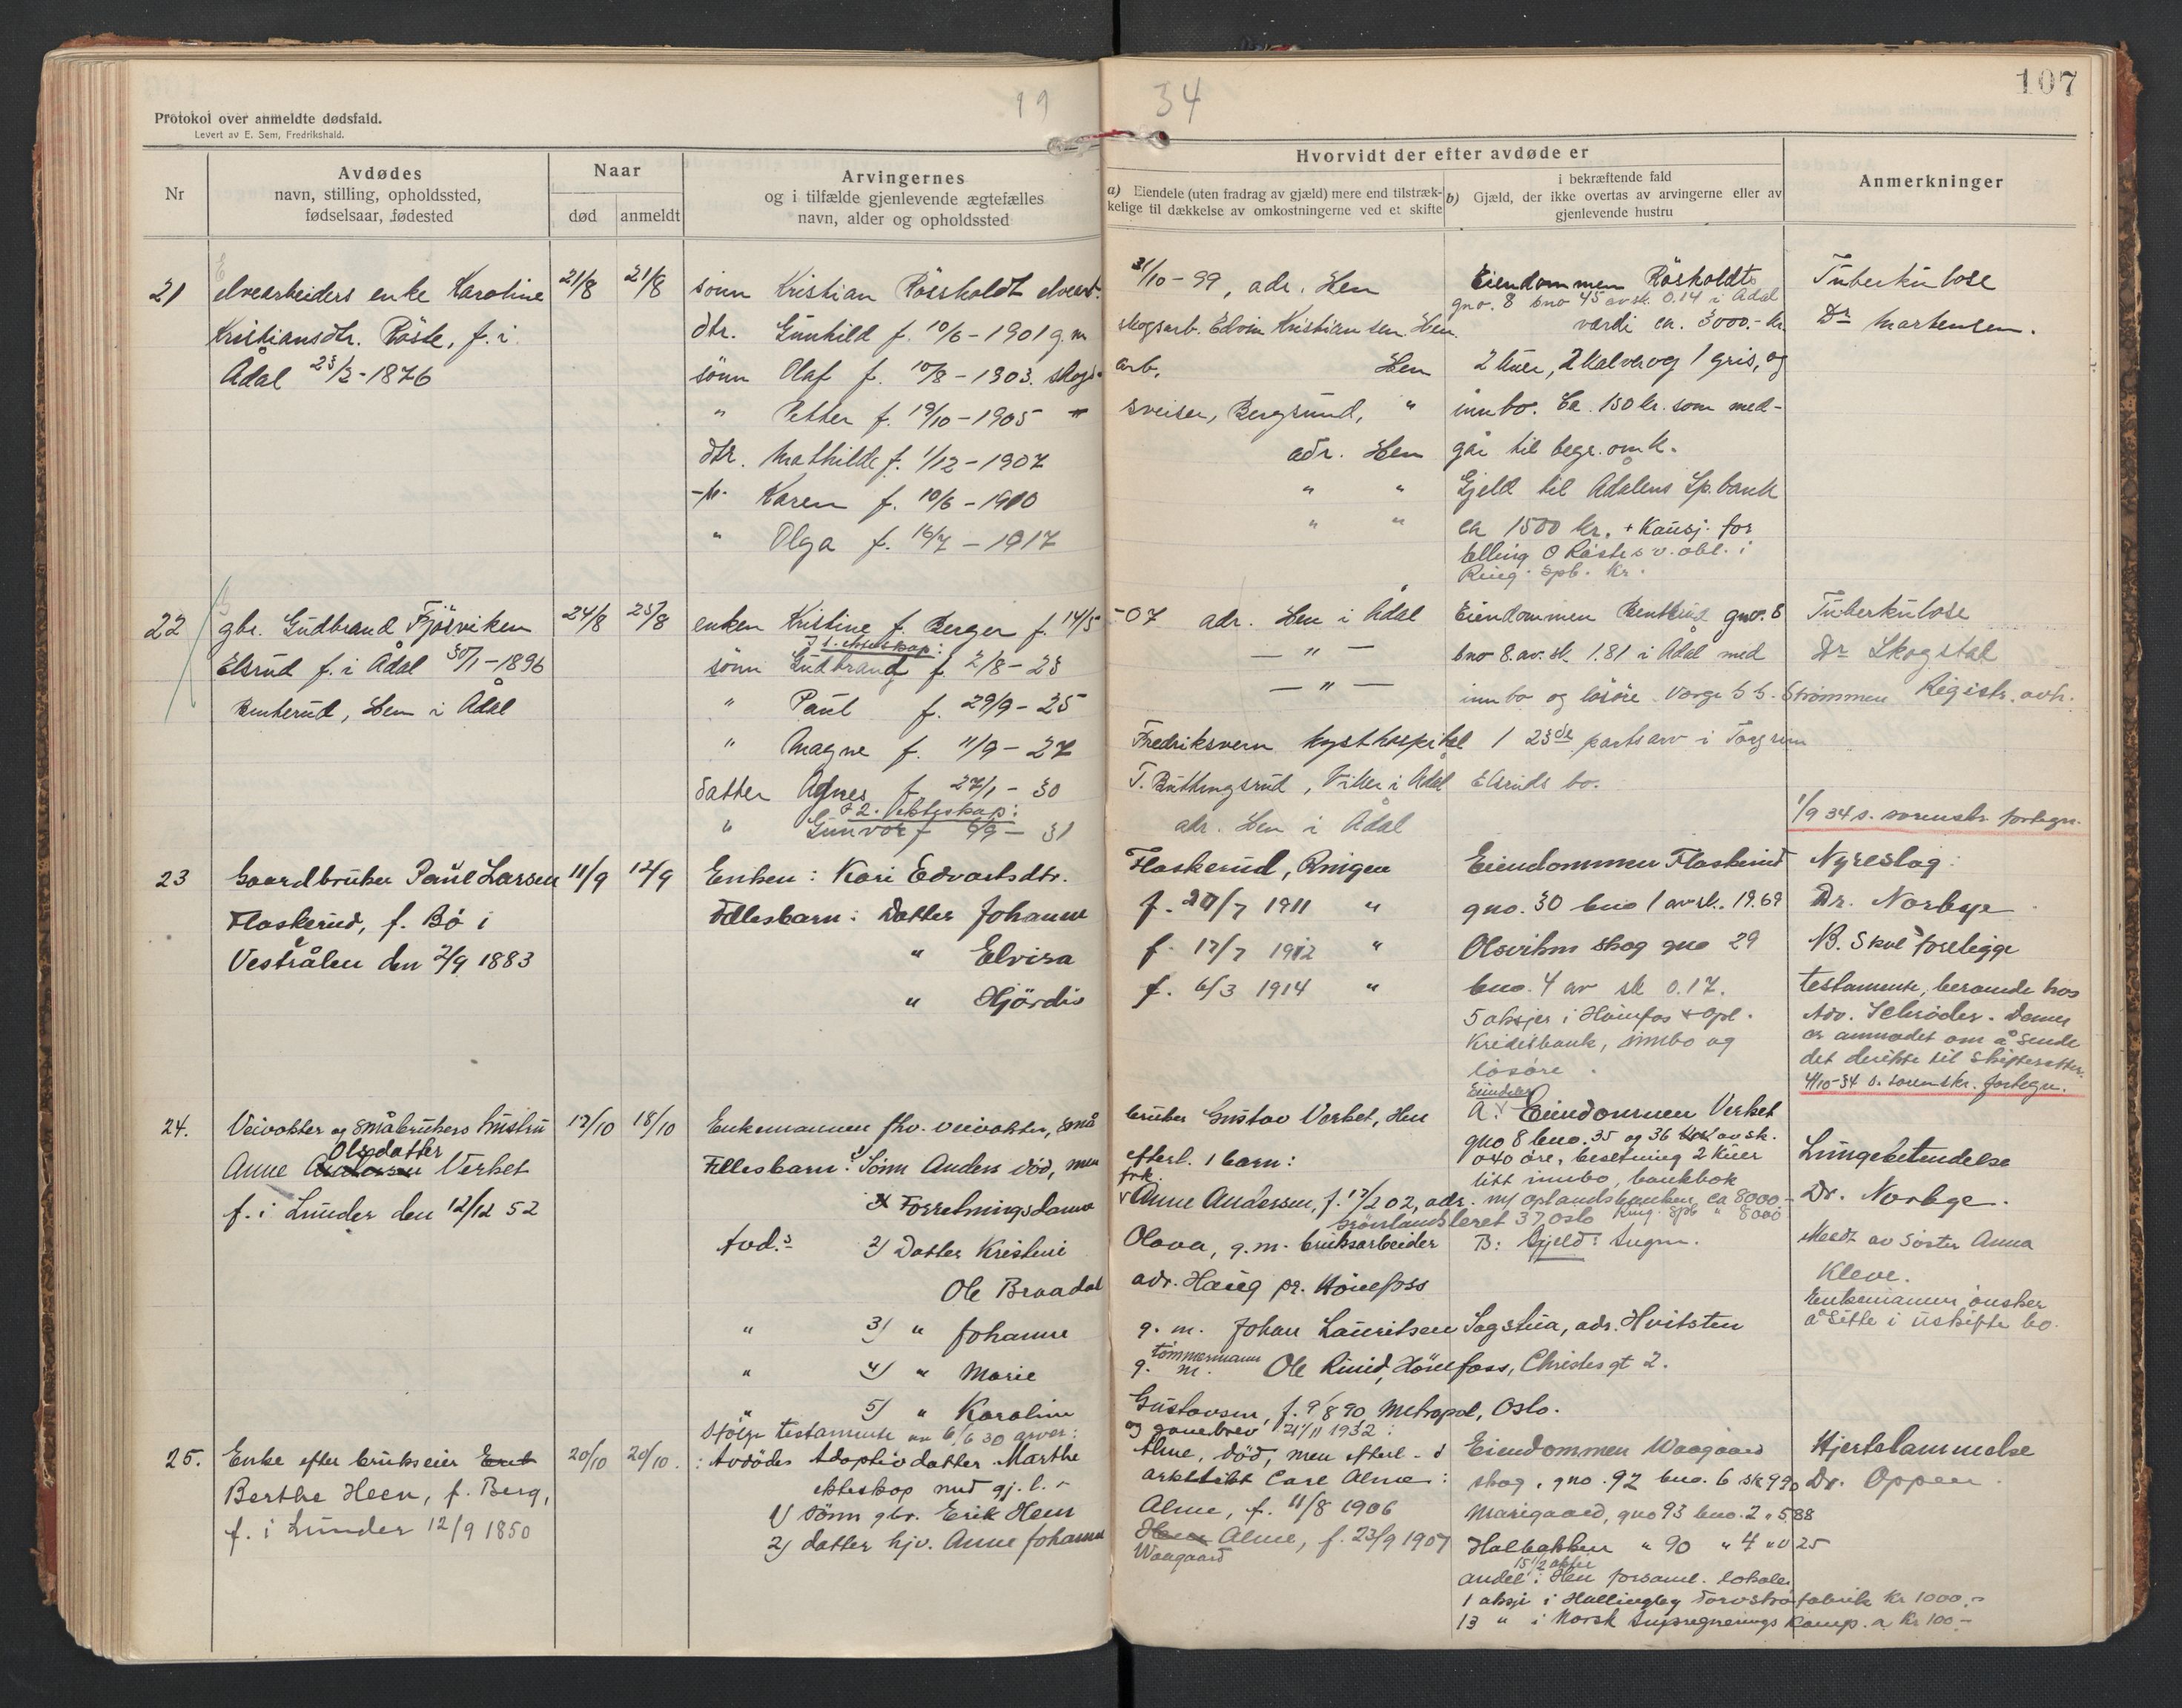 19 34
107
Protokol over anmeldte dødsfald.
Levert av E. Sem, Fredrikshald.
Nr
Avdødes
navn, stilling, opholdssted,
fødselsaar, fødested
Naar
død
anmeldt
Arvingernes
og i tilfælde gjenlevende ægtefælles
navn, alder og opholdssted
Hvorvidt der efter avdøde er
a) Eiendele (uten fradrag av gjæld) mere end tilstræk-
kelige til dækkelse av omkostningerne ved et skifte
i bekræftende fald
b) Gjæld, der ikke overtas av arvingerne eller av
gjenlevende hustru
Anmerkninger
21
elvearbeiders enke Karoline
Kristiansdtr. Röste, f. i
Ådal 23/2-1876
21/8
21/8
sönn Kristian Rössholdt elvearb.
dtr. Gunhild f. 10/6-1901 g.m
sönn Olaf f. 10/8-1903. skogs-
" Petter f. 19/10-1905 "
dtr. Mathilde f. 1/12-1907
Karen f. 10/6-1910
" Olga f. 16/7-1917
31/10-99, adr. Hen
skogsarb. Edvin Kristiansen. Hen.
arb. Hen
sveiser, Bergsund, "
adr. Hen
" "
" "
Eiendommen Rösholdt
gno. 8 bno 45 av sk. 0.14 i Ådal
værdi ca. 3000.- kr
2 kuer, 2 kalver og 1 gris, og
innbo. Ca. 150 kr. som med-
går til begr. omk.
Gjeld til Ådalens Sp.bank
ca 1500 kr. + Kausj. for
Elling O Röste s v. obl. i
Ring. Spb. Kr.
Tuberkulose
Dr Martensen.
22
gbr. Gudbrand Fjösviken
Elsrud f. i Ådal 30/1-1896
Benterud, Hen i Ådal
24/8
25/8
enken Kristine f. Berger f. 14/5
I 1. ekteskap:
sönn Gudbrand f. 2/8-23
" Paul f. 29/9-25
" Magne f. 11/9-27
datter Agnes f. 27/1-30
I 2. ekteskap:
" Gunvor f. 9/9-31
-07 adr. Hen i Ådal
— " —
— " —
Fredriksvern kysthospital
T. Buttingsrud, Viker i Ådal
adr. Hen i Ådal
Eiendommen Benterud gno. 8
bno 8. av. sk. 1.81 i Ådal med
innbo og lösöre. Verge S. Strømmen
1 23de partsarv i Torgrim
Elsruds bo.
Tuberkulose
Dr Skogstad
Registr. avh.
1/9 34 s. sorenskr. fortegn.
23
Gaardbruker Paul Larsen
Flaskerud, f. Bö i
Vesterålen den 2/9 1883
11/9
12/9
Enken: Kari Edvartsdtr.
Fellesbarn: Datter Johanne
" Elvira
" Hjördis
Flaskerud, Ringer.
f. 20/7 1911 "
f. 17/7 1912 "
f. 6/3 1914 "
Eiendommen Flaskerud
gno. 30 bno 1 av sk. 19.69
Olsviken skog gno 29
bno. 4 av sk 0.17.
5 aksjer i Hönefos & Opl.
Kreditbank, innbo og
lösöre.
Nyreslag:
Dr. Norbye
NB. Skal foreligge
testamente, beroende hos
Adv. Schröder. Denne
er anmodet om å sende
det derikke til skifteretten.
4/10-34 s. sorenskr. fortegn.
24.
Veivokter og småbrukers hustru
Olsdatter
Anne Andersen Verket
f. i Lunder den 12/12 52
17/10
18/10
Enkemannen fhv. veivokter, små
Fellesbarn: 1) Sönn Anders död, men
Forretningsdame
Avd.s 2) Datter Kristine
Ole Braadal
" 3) " Johanne
" 4) " Marie
" 5) " Karoline
bruker Gustav Verket, Hen
efterl. 1 barn:
frk.
Anne Andersen, f. 17/2 02, adr.
Grönlandsleret 37, Oslo
Olava, g.m. bruksarbeider
adr. Haug pr. Hönefoss
g. m. Johan Lauritsen Sagstua, adr. Hvitsten
tömmermann
g. m. Ole Ruud, Hönefoss, Christies gt 2.
Gustavsen, f. 9/8 90 Metropol, Oslo.
Eiendeler
A: Eiendommen Verket
gno 8 bno. 35 og 36 av sk.
040 öre, besetning 2 kuer
litt innbo, bankbok
m/ Oplandsbanken, ca 8000-
Ring. Spb " 8000
B: Gjeld: Ingen.
Lungebetendelse
Dr. Norbye.
Meldt av söster Anna
Kleve.
Enkemannen önsker
å sitte i uskifte bo.
25.
Enke efter brukseier Erik
Berthe Heen, f. Berg,
f. i Lunder 12/9 1850
20/10
20/10.
Ifölge testamente av 6/6 30 arver:
: Avdödes Adoptivdatter Marthe
ekteskap med gj. l.
1) Sönn gbr. Erik Hem
2) datter hjv. Anne Johanne
og gavebrev 21/11 1932:
Alme, död, men efterl. i
arkitekt Carl Alme:
Alme, f. 11/8 1906
Heen Alme, f. 23/9 1907
Waagaard
Eiendommen Waagaard
skog, gno. 92 bno. 6 sk 990
Marigaard, gno 93 bno. 2 " 5.88
Halbakken " 90 " 4 " 0 25
15 1/2 aktie
andel i Hen forsaml. lokale
1 aksje i Hallingby Torvströfabrik kr 1000.-
13 " i Norsk Impregnerings Komp. a kr 100.-
Hjertelammelse
Dr. Oppen.